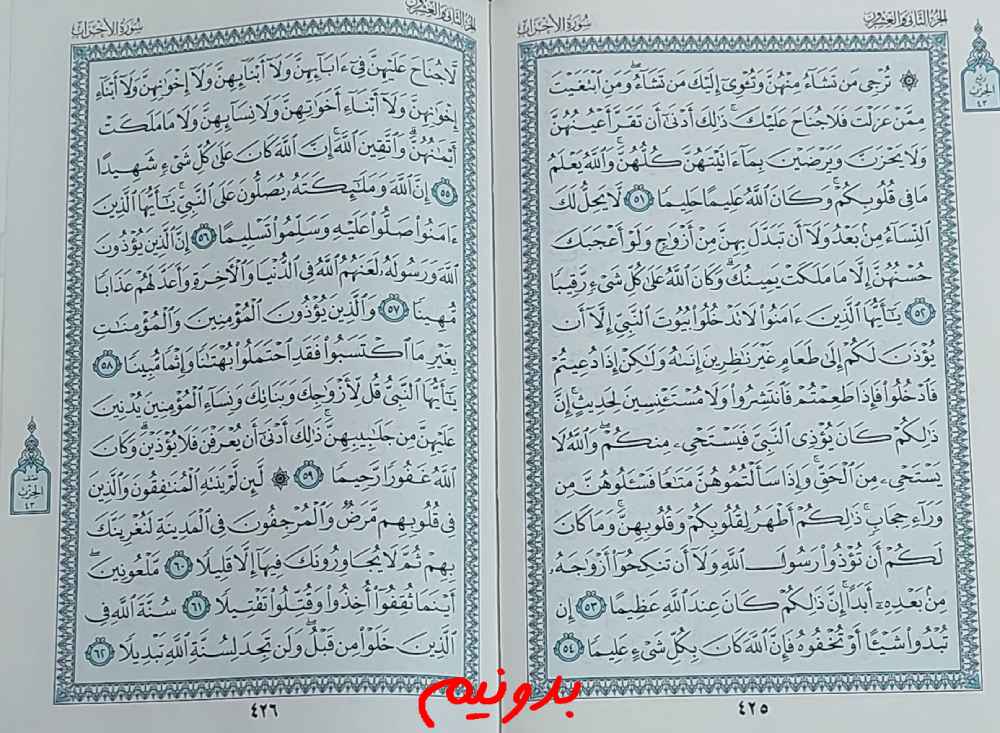 الجزء الثاني والعشرون
سورة الأحزاب
ربع
الحزب
٤٣
۞ تُرْجِي مَن تَشَآءُ مِنْهُنَّ وَتُـْٔوِيٓ إِلَيْكَ مَن تَشَآءُۖ وَمَنِ ٱبْتَغَيْتَ
مِمَّنْ عَزَلْتَ فَلَا جُنَاحَ عَلَيْكَۚ ذَٰلِكَ أَدْنَىٰٓ أَن تَقَرَّ أَعْيُنُهُنَّ
وَلَا يَحْزَنَّ وَيَرْضَيْنَ بِمَآ ءَاتَيْتَهُنَّ كُلُّهُنَّۚ وَٱللَّهُ يَعْلَمُ
مَا فِي قُلُوبِكُمْۚ وَكَانَ ٱللَّهُ عَلِيمًا حَلِيمٗا ٥١ لَّا يَحِلُّ لَكَ
ٱلنِّسَآءُ مِنۢ بَعْدُ وَلَآ أَن تَبَدَّلَ بِهِنَّ مِنْ أَزْوَٰجٖ وَلَوْ أَعْجَبَكَ
حُسْنُهُنَّ إِلَّا مَا مَلَكَتْ يَمِينُكَۗ وَكَانَ ٱللَّهُ عَلَىٰ كُلِّ شَيْءٖ رَّقِيبٗا
٥٢ يَٰٓأَيُّهَا ٱلَّذِينَ ءَامَنُوا۟ لَا تَدْخُلُوا۟ بُيُوتَ ٱلنَّبِيِّ إِلَّآ أَن
يُؤْذَنَ لَكُمْ إِلَىٰ طَعَامٍ غَيْرَ نَٰظِرِينَ إِنَىٰهُ وَلَٰكِنْ إِذَا دُعِيتُمْ
فَٱدْخُلُوا۟ فَإِذَا طَعِمْتُمْ فَٱنتَشِرُوا۟ وَلَا مُسْتَـْٔنِسِينَ لِحَدِيثٍۚ إِنَّ
ذَٰلِكُمْ كَانَ يُؤْذِي ٱلنَّبِيَّ فَيَسْتَحْيِۦ مِنكُمْۖ وَٱللَّهُ لَا
يَسْتَحْيِۦ مِنَ ٱلْحَقِّۚ وَإِذَا سَأَلْتُمُوهُنَّ مَتَٰعٗا فَسْـَٔلُوهُنَّ مِن
وَرَآءِ حِجَابٖۚ ذَٰلِكُمْ أَطْهَرُ لِقُلُوبِكُمْ وَقُلُوبِهِنَّۚ وَمَا كَانَ
لَكُمْ أَن تُؤْذُوا۟ رَسُولَ ٱللَّهِ وَلَآ أَن تَنكِحُوٓا۟ أَزْوَٰجَهُۥ
مِنۢ بَعْدِهِۦٓ أَبَدًاۚ إِنَّ ذَٰلِكُمْ كَانَ عِندَ ٱللَّهِ عَظِيمًا ٥٣ إِن
تُبْدُوا۟ شَيْـًٔا أَوْ تُخْفُوهُ فَإِنَّ ٱللَّهَ كَانَ بِكُلِّ شَيْءٍ عَلِيمٗا ٥٤
٤٢٥
الجزء الثاني والعشرون
سورة الأحزاب
لَّا جُنَاحَ عَلَيْهِنَّ فِيٓ ءَابَآئِهِنَّ وَلَآ أَبْنَآئِهِنَّ وَلَآ إِخْوَٰنِهِنَّ وَلَآ أَبْنَآءِ
إِخْوَٰنِهِنَّ وَلَآ أَبْنَآءِ أَخَوَٰتِهِنَّ وَلَا نِسَآئِهِنَّ وَلَا مَا مَلَكَتْ
أَيْمَٰنُهُنَّۗ وَٱتَّقِينَ ٱللَّهَۚ إِنَّ ٱللَّهَ كَانَ عَلَىٰ كُلِّ شَيْءٖ شَهِيدًا
٥٥ إِنَّ ٱللَّهَ وَمَلَٰٓئِكَتَهُۥ يُصَلُّونَ عَلَى ٱلنَّبِيِّۚ يَٰٓأَيُّهَا ٱلَّذِينَ
ءَامَنُوا۟ صَلُّوا۟ عَلَيْهِ وَسَلِّمُوا۟ تَسْلِيمًا ٥٦ إِنَّ ٱلَّذِينَ يُؤْذُونَ
ٱللَّهَ وَرَسُولَهُۥ لَعَنَهُمُ ٱللَّهُ فِي ٱلدُّنْيَا وَٱلْأٓخِرَةِ وَأَعَدَّ لَهُمْ عَذَابٗا
مُّهِينٗا ٥٧ وَٱلَّذِينَ يُؤْذُونَ ٱلْمُؤْمِنِينَ وَٱلْمُؤْمِنَٰتِ
بِغَيْرِ مَا ٱكْتَسَبُوا۟ فَقَدِ ٱحْتَمَلُوا۟ بُهْتَٰنٗا وَإِثْمٗا مُّبِينٗا ٥٨
يَٰٓأَيُّهَا ٱلنَّبِيُّ قُل لِّأَزْوَٰجِكَ وَبَنَاتِكَ وَنِسَآءِ ٱلْمُؤْمِنِينَ يُدْنِينَ
عَلَيْهِنَّ مِن جَلَٰبِيبِهِنَّۚ ذَٰلِكَ أَدْنَىٰٓ أَن يُعْرَفْنَ فَلَا يُؤْذَيْنَۗ وَكَانَ
ٱللَّهُ غَفُورٗا رَّحِيمٗا ٥٩ ۞ لَّئِن لَّمْ يَنتَهِ ٱلْمُنَٰفِقُونَ وَٱلَّذِينَ
فِي قُلُوبِهِم مَّرَضٞ وَٱلْمُرْجِفُونَ فِي ٱلْمَدِينَةِ لَنُغْرِيَنَّكَ
بِهِمْ ثُمَّ لَا يُجَاوِرُونَكَ فِيهَآ إِلَّا قَلِيلٗا ٦٠ مَّلْعُونِينَۖ
أَيْنَمَا ثُقِفُوٓا۟ أُخِذُوا۟ وَقُتِّلُوا۟ تَقْتِيلٗا ٦١ سُنَّةَ ٱللَّهِ فِي
ٱلَّذِينَ خَلَوْا۟ مِن قَبْلُۖ وَلَن تَجِدَ لِسُنَّةِ ٱللَّهِ تَبْدِيلٗا ٦٢
نصف
الحزب
٤٣
٤٢٦
بدونيم